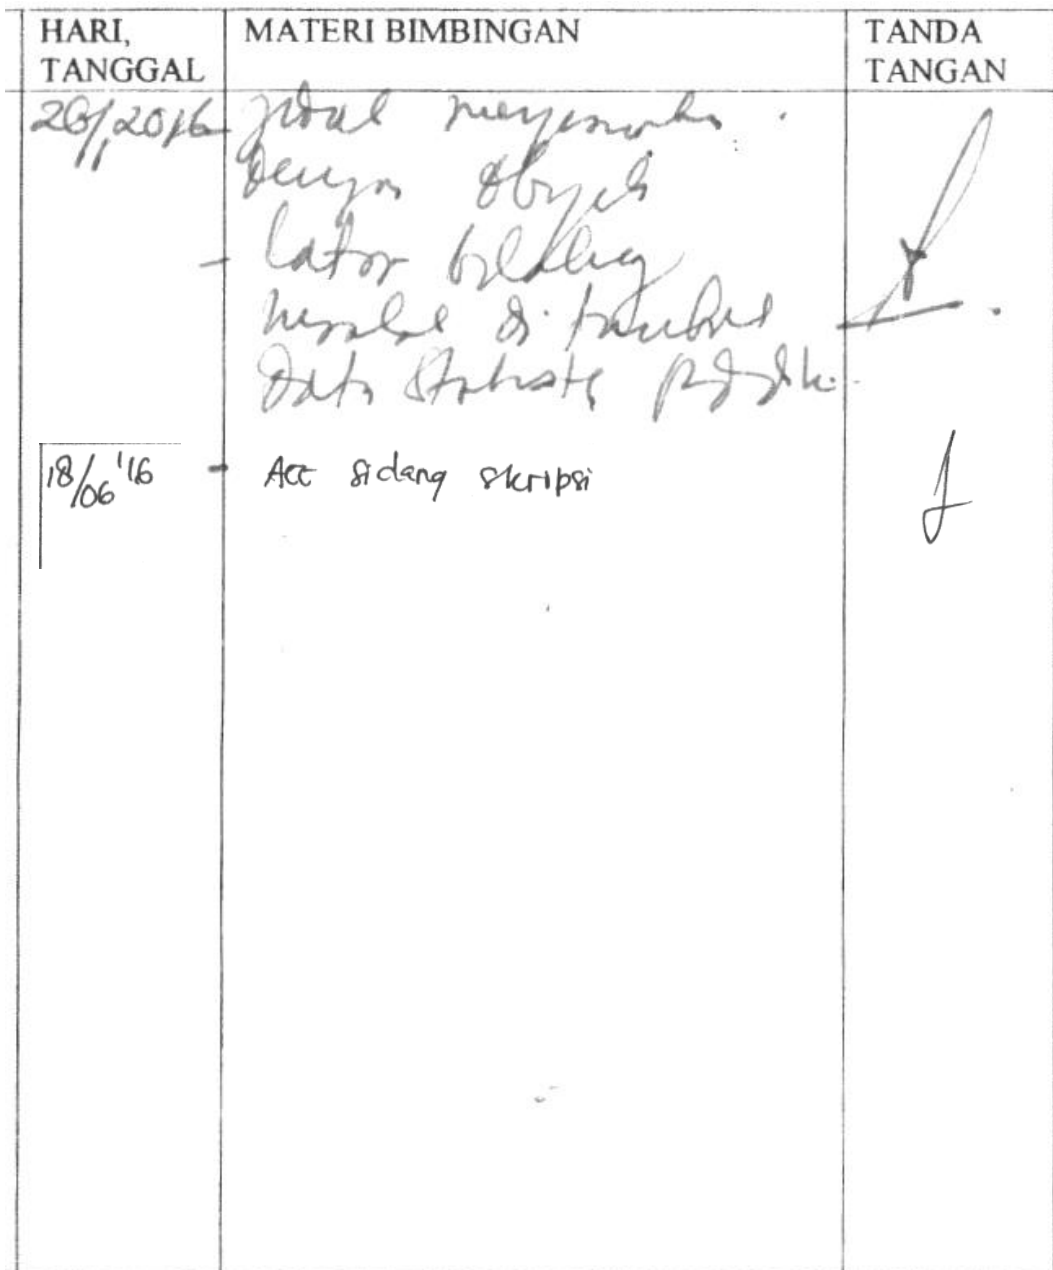 HARI, TANGGAL
MATERI BIMBINGAN
TANDA TANGAN
2016
Judul
dengan obyek
- Latar belakang
masalah di tambah
Data Statistik
18/06 '16 - Acc sidang skripsi